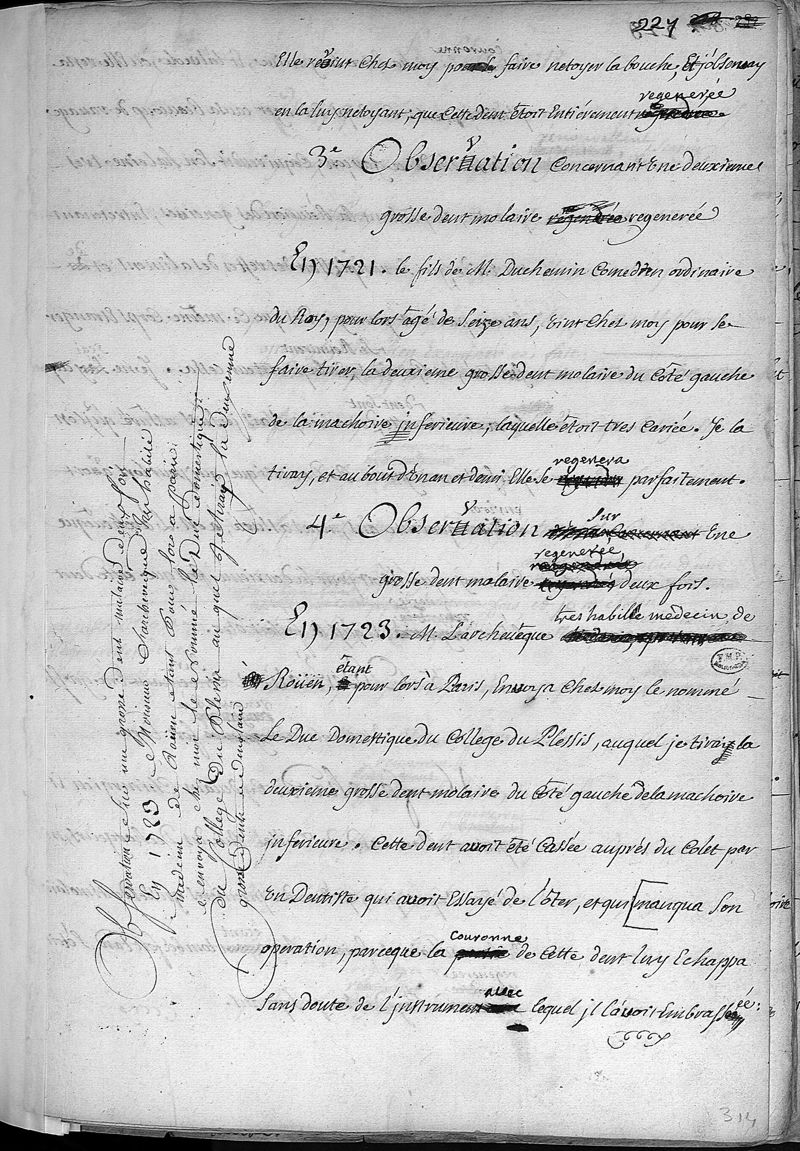 227
couronne
Elle revint chez moy pour se faire netoyer la bouche, Et j'observay
regenerée
en la luy netoyant, que cette dent étoit Entiérement
3e Observation concernant Une deuxieme
grosse dent molaire regenerée
En 1721. le fils de M. Duchemin Comedien ordinaire
du Roy, pour lors agé de Seize ans, vint chez moy pour se
faire tirer, la deuxieme grosse dent molaire du Côté gauche
de la machoire inferieure, laquelle étoit tres cariée. Je la
regenera
tiray, et au bout d'Un an et demi Elle se parfaitement.
4e Observation sur Une
regenerée,
grosse dent molaire deux fois.
tres habille medecin de
En 1723. M. Larcheveque
étant
Roüen, pour lors à Paris, Envoya Chez moy le nommé
Le Duc Domestique du College du Plessis, auquel je tiray la
deuxieme grosse dent molaire du Côté gauche de la machoire
inferieure. Cette dent avoit été Cassée auprés du Colet par
Un Dentiste qui avoit Essayé de l'ôter, et qui [manqua Son
couronne
operation, parceque la de Cette dent luy Echappa
avec
Sans doute de l'instrument lequel il l'avoit Embrassée:
Observation sur une grosse dent molaire deux fois
En 1723 Monsieur Larcheveque tres habile
medecin de Roüen etant Pour lors a paris
envoya chez moi le nommé le Duc Domestique
du College du Plessis au quel je tiray la deuxieme
grosse dent molaire
314